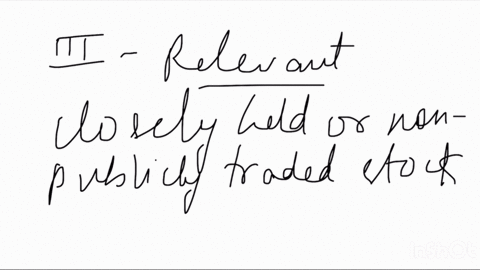 III - Relevant
closely held or non-
publicly traded stock